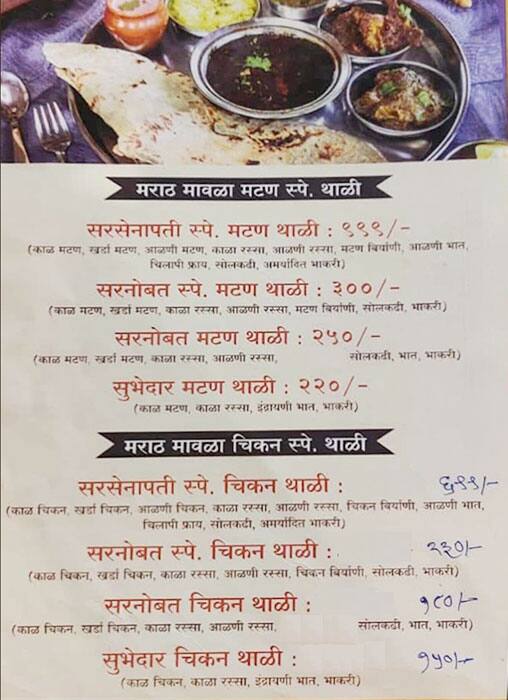 मराठ मावळा मटण स्पे. थाळी
सरसेनापती स्पे. मटण थाळी : ९९९/-
(काळ मटण, खर्डा मटण, आळणी मटण, काळा रस्सा, आळणी रस्सा, मटण बिर्याणी, आळणी भात,
चिलापी फ्राय, सोलकढी, अमर्यादित भाकरी)
सरनोबत स्पे. मटण थाळी : ३००/-
(काळ मटण, खर्डा मटण, काळा रस्सा, आळणी रस्सा, मटण बिर्याणी, सोलकढी, भाकरी)
सरनोबत मटण थाळी : २५०/-
(काळ मटण, खर्डा मटण, काळा रस्सा, आळणी रस्सा, सोलकढी, भात, भाकरी)
सुभेदार मटण थाळी : २२०/-
(काळ मटण, काळा रस्सा, इंद्रायणी भात, भाकरी)
मराठ मावळा चिकन स्पे. थाळी
सरसेनापती स्पे. चिकन थाळी : ६९९/-
(काळ चिकन, खर्डा चिकन, आळणी चिकन, काळा रस्सा, आळणी रस्सा, चिकन बिर्याणी, आळणी भात,
चिलापी फ्राय, सोलकढी, अमर्यादित भाकरी)
सरनोबत स्पे. चिकन थाळी : २३०/-
(काळ चिकन, खर्डा चिकन, काळा रस्सा, आळणी रस्सा, चिकन बिर्याणी, सोलकढी, भाकरी)
सरनोबत चिकन थाळी : १८०/-
(काळ चिकन, खर्डा चिकन, काळा रस्सा, आळणी रस्सा, सोलकढी, भात, भाकरी)
सुभेदार चिकन थाळी : १५०/-
(काळ चिकन, काळा रस्सा, इंद्रायणी भात, भाकरी)